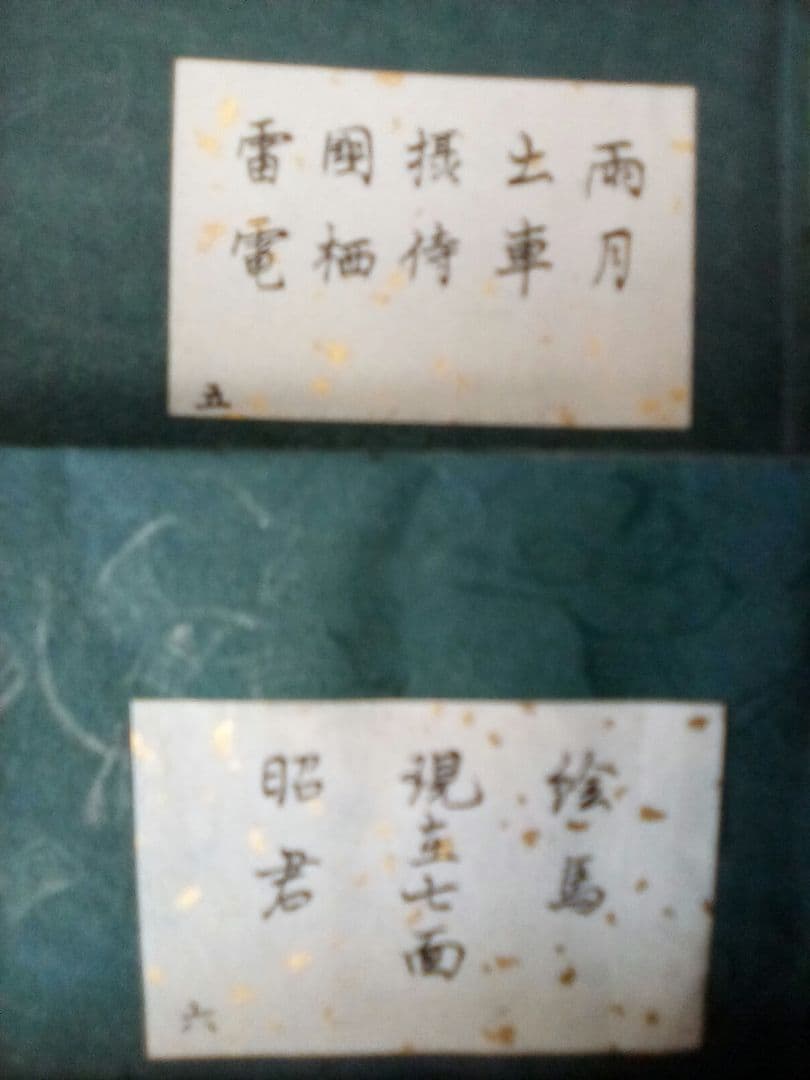 雨月
土車
摂待
栖
雷電
五
絵馬
現在七面
昭君
六